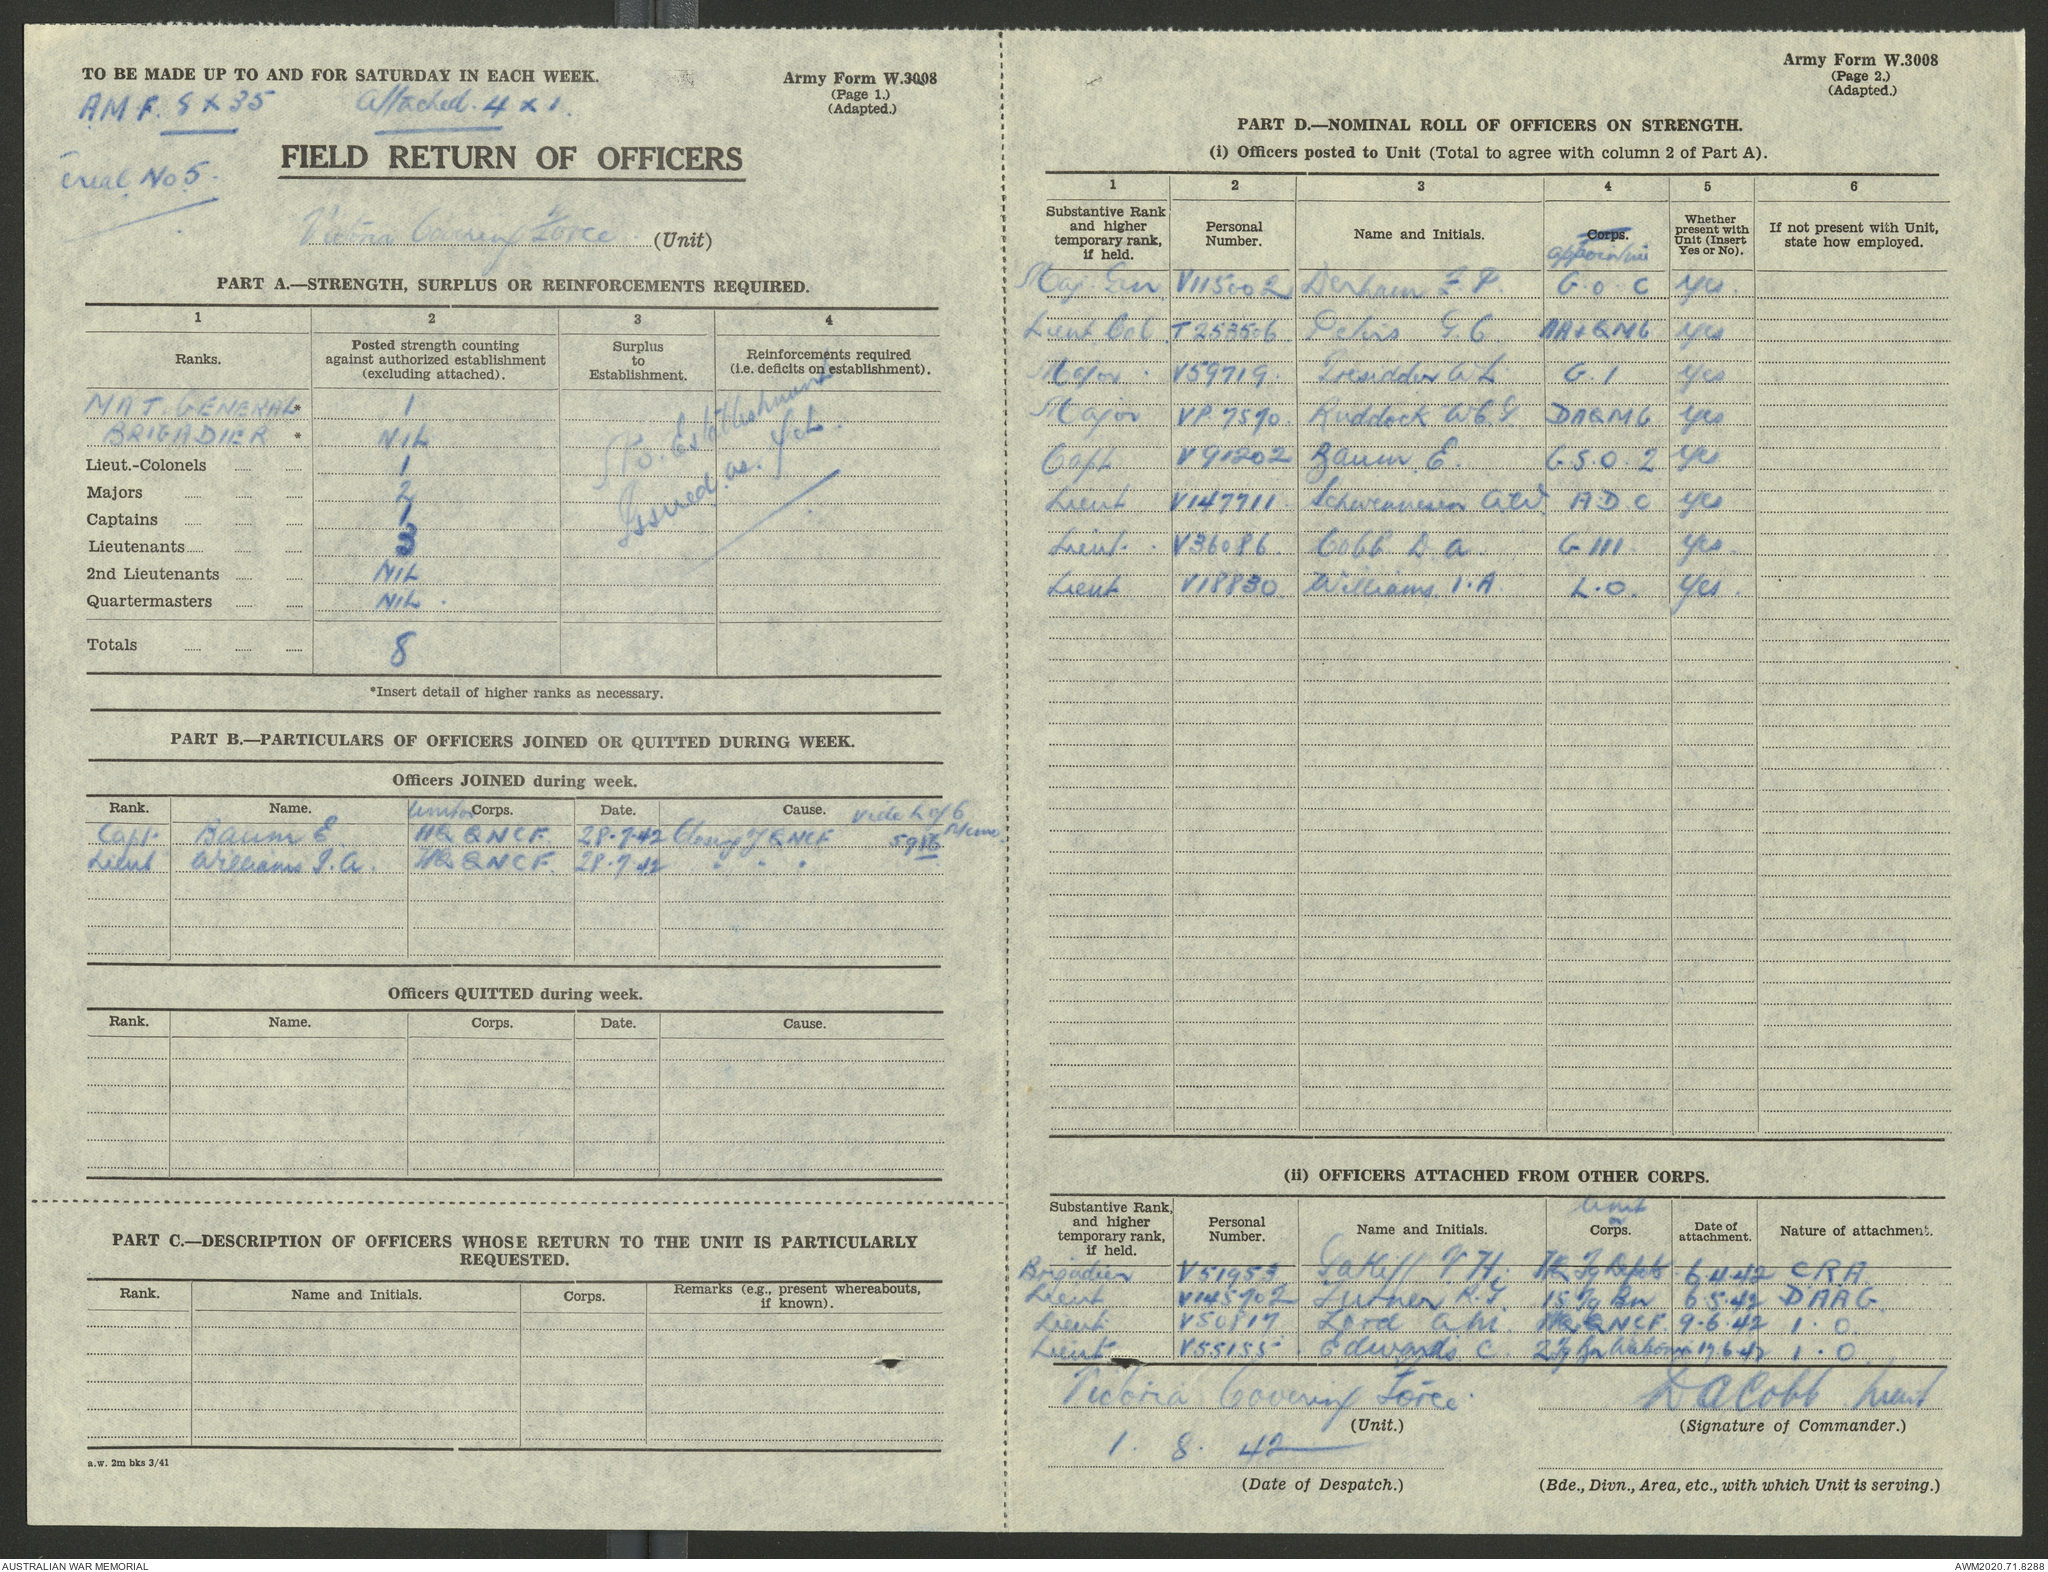 TO BE MADE UP TO AND FOR SATURDAY IN EACH WEEK.
Army Form W.3008
(Page 1.)
(Adapted.)
A.M.F. 8 x 35 Attached. 4 x 1.
Serial No 5.
FIELD RETURN OF OFFICERS
Victoria Covering Force. (Unit)
PART A.—STRENGTH, SURPLUS OR REINFORCEMENTS REQUIRED.
1 2 3 4
Ranks. Posted strength counting against authorized establishment (excluding attached). Surplus to Establishment. Reinforcements required (i.e. deficits on establishment).
MAJ. GENERAL* 1
BRIGADIER * NIL
Lieut.-Colonels ..... ..... 1
Majors ..... ..... ..... 2
Captains ..... ..... ..... 1
Lieutenants ..... ..... ..... 3
2nd Lieutenants ..... ..... NIL
Quartermasters ..... ..... NIL.
No. Establishment
Issued. as. yet.
Totals ..... ..... ..... 8
*Insert detail of higher ranks as necessary.
PART B.—PARTICULARS OF OFFICERS JOINED OR QUITTED DURING WEEK.
Officers JOINED during week.
Rank. Name. Unit or Corps. Date. Cause. vide L of C
Capt. Baum E HQ QNCF. 28.7.42 QNCF 5986 Memo
Lieut Williams I.A. HQ QNCF. 28.7.42 " " "
Officers QUITTED during week.
Rank. Name. Corps. Date. Cause.
PART C.—DESCRIPTION OF OFFICERS WHOSE RETURN TO THE UNIT IS PARTICULARLY
REQUESTED.
Rank. Name and Initials. Corps. Remarks (e.g., present whereabouts, if known).
a.w. 2m bks 3/41
Army Form W.3008
(Page 2.)
(Adapted.)
PART D.—NOMINAL ROLL OF OFFICERS ON STRENGTH.
(i) Officers posted to Unit (Total to agree with column 2 of Part A).
1 2 3 4 5 6
Substantive Rank and higher temporary rank, if held. Personal Number. Name and Initials. Corps. Whether present with Unit (Insert Yes or No). If not present with Unit, state how employed.
Maj. Gen V115002 Derham F.P. G.O.C yes.
Lieut Col T253506 G C AA+QMG yes
Major. V59719. G.1 yes
Major VP.7570. Ruddock DAQMG yes
Capt V91202 Baum. E. G.S.O.2 yes
Lieut V147711. A.D.C yes
Lieut. V36086. Cobb D.A. G III. yes.
Lieut V18830 Williams. I.A. L.O. yes.
(ii) OFFICERS ATTACHED FROM OTHER CORPS.
Substantive Rank, and higher temporary rank, if held. Personal Number. Name and Initials. Unit or Corps. Date of attachment. Nature of attachment.
Brigadier V51953 Gatliff V H. HQ Tg Depots. 6.4.42 CRA.
Lieut V145702 Turner R.G. 15 Tg Bn 6.5.42 DAAG.
Lieut. V50817 Lord HQ QNCF. 9.6.42 I.O.
Lieut. V55155. Edwards C. 2 Tg Bn 17.6.42 I.O.
Victoria Covering Force.
(Unit.)
D A Cobb Lieut
(Signature of Commander.)
1. 8. 42
(Date of Despatch.)
(Bde., Divn., Area, etc., with which Unit is serving.)
AUSTRALIAN WAR MEMORIAL
AWM2020.71.8288